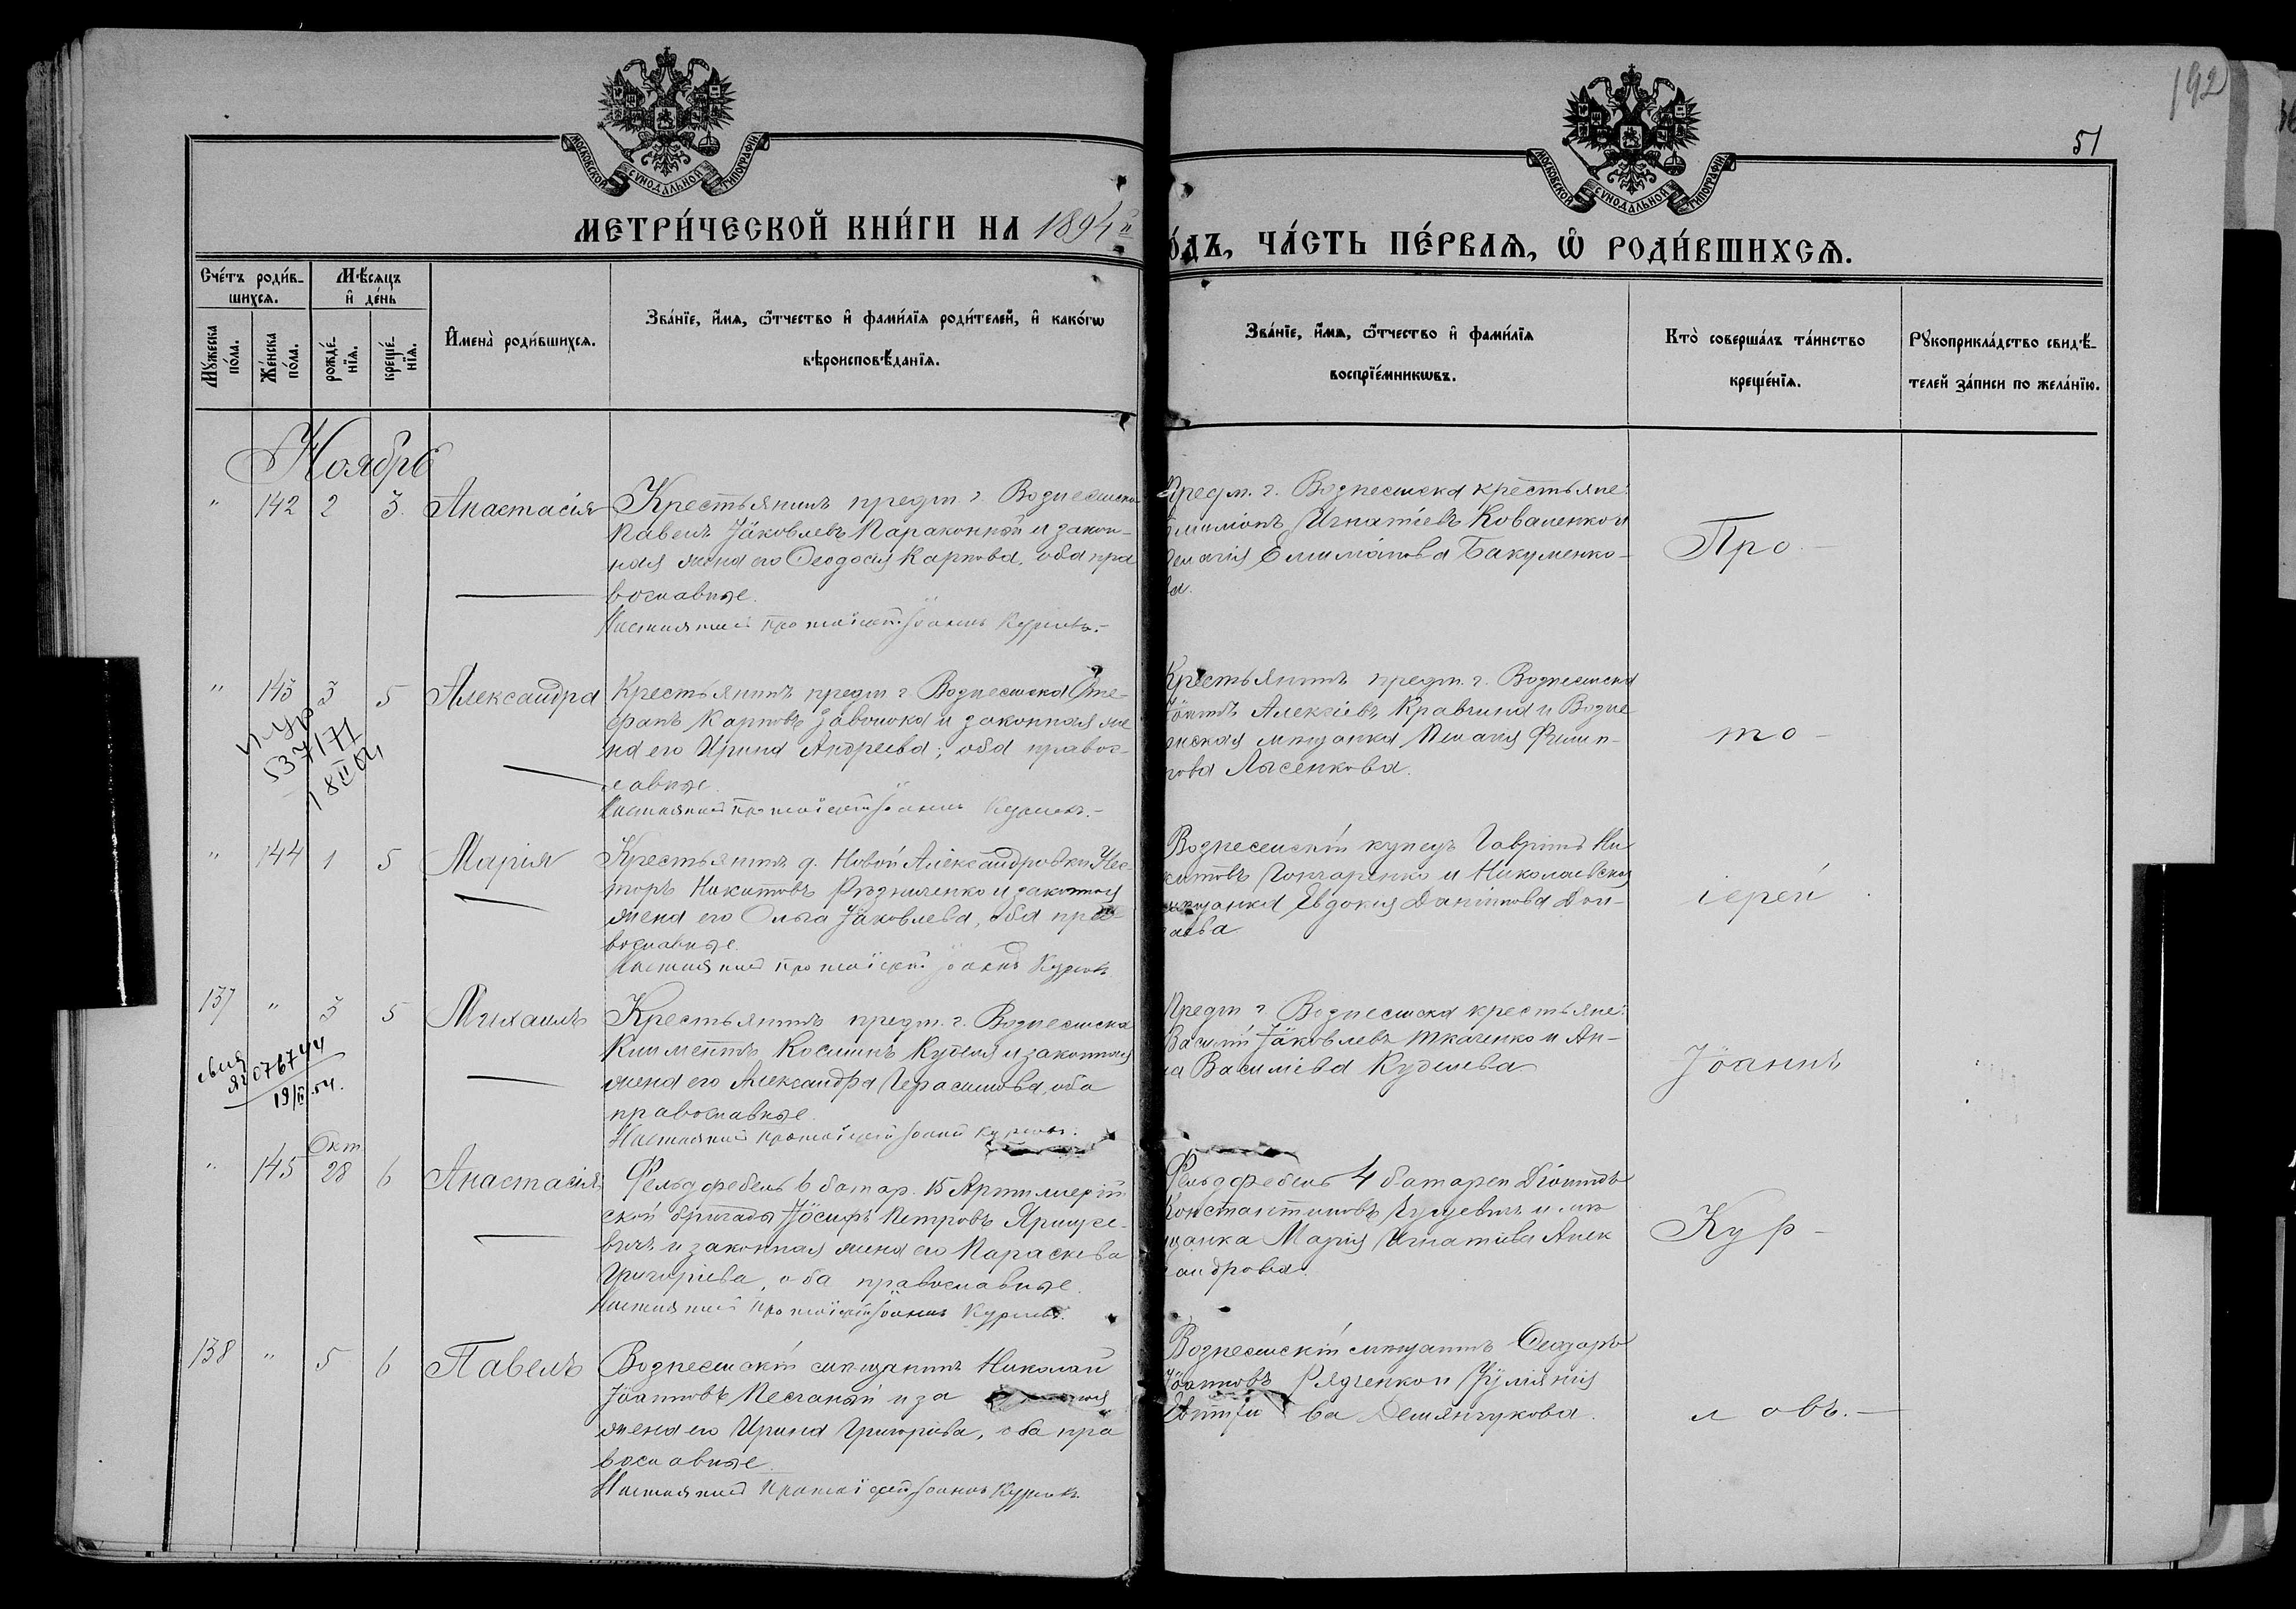 192
51
МОСКОВСКОЙ СѴНОДАЛЬНОЙ ТИПОГРАФІИ
МОСКОВСКОЙ СѴНОДАЛЬНОЙ ТИПОГРАФІИ
МЕТРИ́ЧЕСКОЙ КНИ́ГИ НА 1894й
О́ДЪ, ЧА́СТЬ ПЕ́РВАЯ, Ѽ РОДИ́ВШИХСЯ.
Сче́тъ роди́в-
шихся.
Мѣ́сяцъ
и҆ де́нь
Мꙋ́жеска по́ла.
Же́нска по́ла.
рожде́-
нїя.
креще́-
нїя.
И҆мена̀ роди́вшихся.
Зва́нїе, и҆́мя, ѻ҆́тчество и҆ фами́лїя роди́телей, и҆ како́гѡ
вѣроисповѣ́данїя.
Зва́нїе, и҆́мя, ѻ҆́тчество и҆ фами́лїя
воспрїе́мникѡвъ.
Кто̀ соверша́лъ та́инство
креще́нїя.
Рꙋкоприкла́дство свидѣ́-
телей за́писи по жела́нїю.
Ноябрь
" 142 2 3. Анастасія
Крестьянинъ предм. г. Вознесенска
Павелъ Іаковлевъ Параконный и закон-
ная жена его Ѳеодосія Карпова, оба пра
вославные.
Настоятель Протоіерей Іоаннъ Курловъ.
Предм. г. Вознесенска крестьяне:
Игнатіевъ Коваленко и
Пелагія Елимонова Бакуменко-
ва.
Про-
" 143 3 5 Александра
Крестьянинъ предм г. Вознесенска Сте-
фанъ Карповъ Заволока и законная же
на его Ирина Андреева; оба правос-
лавные.
Настоятель Протоіерей Іоаннъ Курловъ.-
Крестьянинъ предм. г. Вознесенска
Іоаннъ Алексіевъ Кравчина и Возне
енская мѣщанка Пелагія Филип-
пова Лысенкова.
то-
53 7171
18 II 64
" 144 1 5 Марія
Крестьянинъ д. Новой Александровки Нес-
торъ Никитовъ Рѣзниченко и законная
жена его Ольга Іаковлева, оба пра-
вославные.
Настоятель Протоіерей Іоаннъ Курловъ
Вознесенскій купецъ Гавріилъ Ни
китовъ Гончаренко и Николаевская
мѣщанка Евдокія Даніилова Дон-
іерей
137 " 3 5 Михаилъ
Крестьянинъ предм. г. Вознесенска
Климентъ Косминъ Кудля и законная
жена его Александра Герасимова, оба
православные.
Настоятель Протоіерей Іоаннъ Курловъ.
Предм г Вознесенска крестьяне:
Василій Іаковлевъ Ткаченко и Ан-
на Василіева Кудлева
Іоаннъ
ЯГ 076744
19/II.54.
Окт
" 145 28 6 Анастасія
Фельдфебель 6 батар. 15 Артиллерій
ской бригады Іосифъ Петровъ Яршуке-
вичъ и законная жена его Параскева
Григоріева, оба православные.
Настоятель Протоіерей Іоаннъ Курловъ.
Фельдфебель 4 батареи Діомидъ
Константиновъ и мѣ
щанка Марія Игнатіева Алек
андрова.
Кур-
138 " 5 6 Павелъ
Вознесенскій мѣщанинъ Николай
Іоанновъ Песчаный и за ная
жена его Ирина Григоріева, оба пра
вославные.
Настоятель Протоіерей Іоаннъ Курловъ.
Вознесенскій мѣщанинъ Ѳеодоръ
Іоанновъ Рядченко и Іуліанія
ва Демянчукова.
ловъ.-